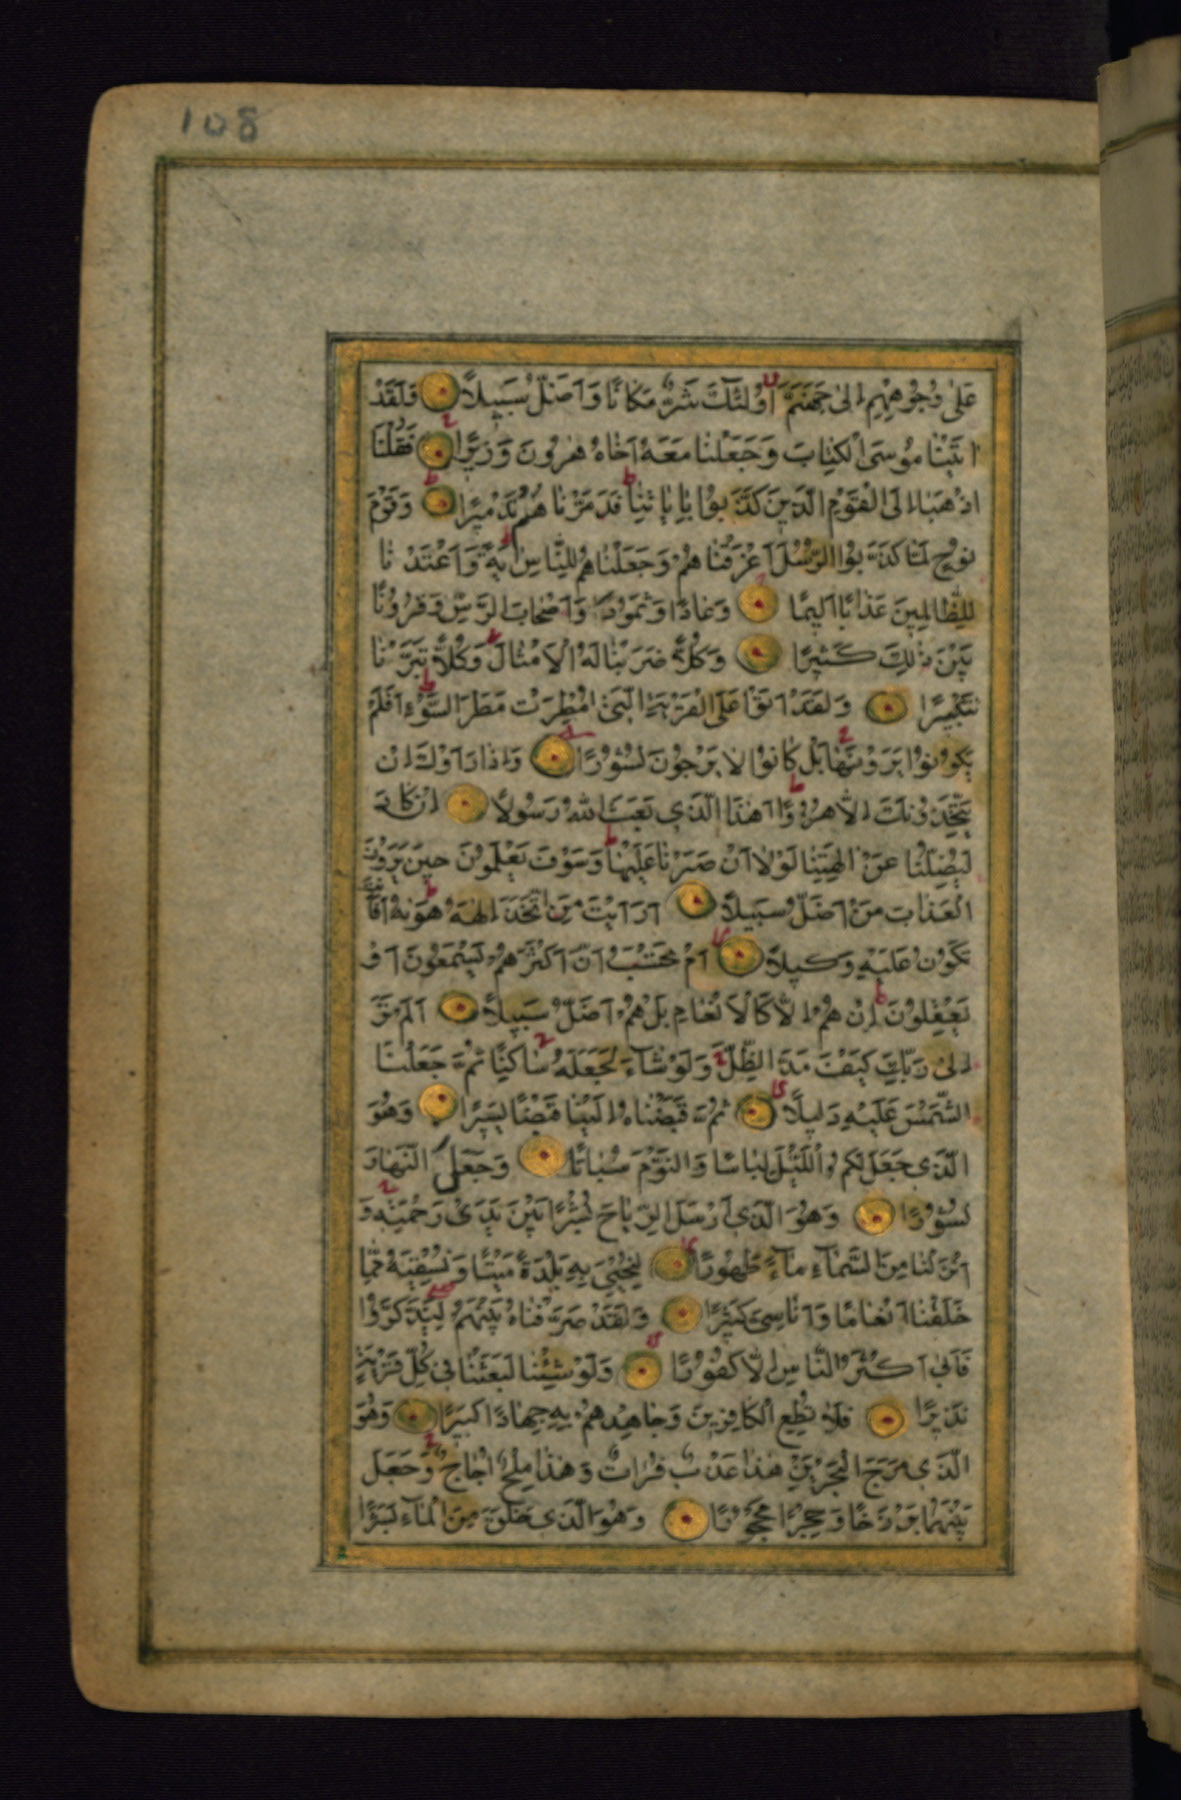 108
عَلىٰ وُجُوهِهِمْ اِلىٰ جَهَنَّمَ اُوْلٰئِكَ شَرٌّ مَكَانًا وَاَضَلُّ سَبِيلًا وَلَقَدْ
اٰتَيْنَا مُوسَى الْكِتَابَ وَجَعَلْنَا مَعَهُ اَخَاهُ هٰرُونَ وَزِيرًا فَقُلْنَا
اذْهَبَا اِلَى الْقَوْمِ الَّذِينَ كَذَّبُوا بِاٰيَاتِنَا فَدَمَّرْنَاهُمْ تَدْمِيرًا وَقَوْمَ
نُوحٍ لَمَّا كَذَّبُوا الرُّسُلَ اَغْرَقْنَاهُمْ وَجَعَلْنَاهُمْ لِلنَّاسِ اٰيَةً وَاَعْتَدْنَا
لِلظَّالِمِينَ عَذَابًا اَلِيمًا وَعَادًا وَثَمُودَا وَاَصْحَابَ الرَّسِّ وَقُرُونًا
بَيْنَ ذٰلِكَ كَثِيرًا وَكُلًّا ضَرَبْنَا لَهُ الْاَمْثَالَ وَكُلًّا تَبَّرْنَا
تَتْبِيرًا وَلَقَدْ اَتَوْا عَلَى الْقَرْيَةِ الَّتِي اُمْطِرَتْ مَطَرَ السَّوْءِ اَفَلَمْ
يَكُونُوا يَرَوْنَهَا بَلْ كَانُوا لَا يَرْجُونَ نُشُورًا وَاِذَا رَاَوْكَ اِنْ
يَتَّخِذُونَكَ اِلَّا هُزُوًا اَهٰذَا الَّذِي بَعَثَ اللّٰهُ رَسُولًا اِنْ كَادَ
لَيُضِلُّنَا عَنْ اٰلِهَتِنَا لَوْلَا اَنْ صَبَرْنَا عَلَيْهَا وَسَوْفَ يَعْلَمُونَ حِينَ يَرَوْنَ
الْعَذَابَ مَنْ اَضَلُّ سَبِيلًا اَرَاَيْتَ مَنِ اتَّخَذَ اِلٰهَهُ هَوٰيهُ اَفَاَنْتَ
تَكُونُ عَلَيْهِ وَكِيلًا اَمْ تَحْسَبُ اَنَّ اَكْثَرَهُمْ يَسْمَعُونَ اَوْ
يَعْقِلُونَ اِنْ هُمْ اِلَّا كَالْاَنْعَامِ بَلْ هُمْ اَضَلُّ سَبِيلًا اَلَمْ تَرَ
اِلىٰ رَبِّكَ كَيْفَ مَدَّ الظِّلَّ وَلَوْ شَاءَ لَجَعَلَهُ سَاكِنًا ثُمَّ جَعَلْنَا
الشَّمْسَ عَلَيْهِ دَلِيلًا ثُمَّ قَبَضْنَاهُ اِلَيْنَا قَبْضًا يَسِيرًا وَهُوَ
الَّذِي جَعَلَ لَكُمُ اللَّيْلَ لِبَاسًا وَالنَّوْمَ سُبَاتًا وَجَعَلَ النَّهَارَ
نُشُورًا وَهُوَ الَّذِي اَرْسَلَ الرِّيَاحَ بُشْرًا بَيْنَ يَدَيْ رَحْمَتِهِ وَ
اَنْزَلْنَا مِنَ السَّمَاءِ مَاءً طَهُورًا لِنُحْيِيَ بِهِ بَلْدَةً مَيْتًا وَنُسْقِيَهُ مِمَّا
خَلَقْنَا اَنْعَامًا وَاَنَاسِيَّ كَثِيرًا وَلَقَدْ صَرَّفْنَاهُ بَيْنَهُمْ لِيَذَّكَّرُوا
فَاَبىٰ اَكْثَرُ النَّاسِ اِلَّا كُفُورًا وَلَوْ شِئْنَا لَبَعَثْنَا فِي كُلِّ قَرْيَةٍ
نَذِيرًا فَلَا تُطِعِ الْكَافِرِينَ وَجَاهِدْهُمْ بِهِ جِهَادًا كَبِيرًا وَهُوَ
الَّذِي مَرَجَ الْبَحْرَيْنِ هٰذَا عَذْبٌ فُرَاتٌ وَهٰذَا مِلْحٌ اُجَاجٌ وَجَعَلَ
بَيْنَهُمَا بَرْزَخًا وَحِجْرًا مَحْجُورًا وَهُوَ الَّذِي خَلَقَ مِنَ الْمَاءِ بَشَرًا